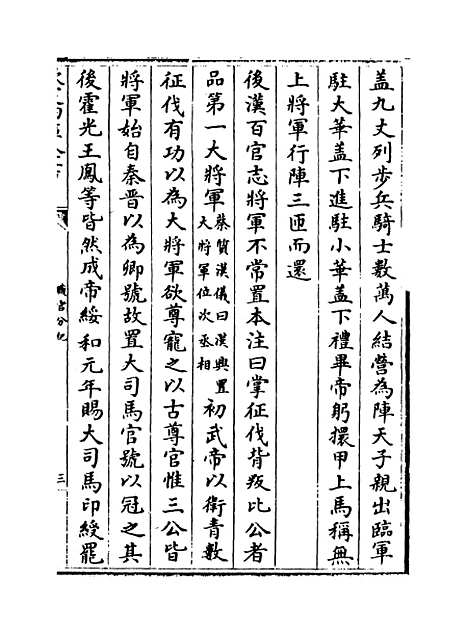 盖九丈列步兵騎士數萬人結營為陣天子親出臨軍
駐大華盖下進駐小華盖下禮畢帝躬擐甲上馬稱無
上將軍行陣三匝而還
後漢百官志將軍不常置本注曰掌征伐背叛比公者
品第一大將軍蔡質漢儀曰漢興置大將軍位次丞相初武帝以衛青數
征伐有功以為大將軍欲尊寵之以古尊官惟三公皆
將軍始自秦晋以為卿號故置大司馬官號以冠之其
後霍光王鳳等皆然成帝綏和元年賜大司馬印綬罷
職官分紀
三